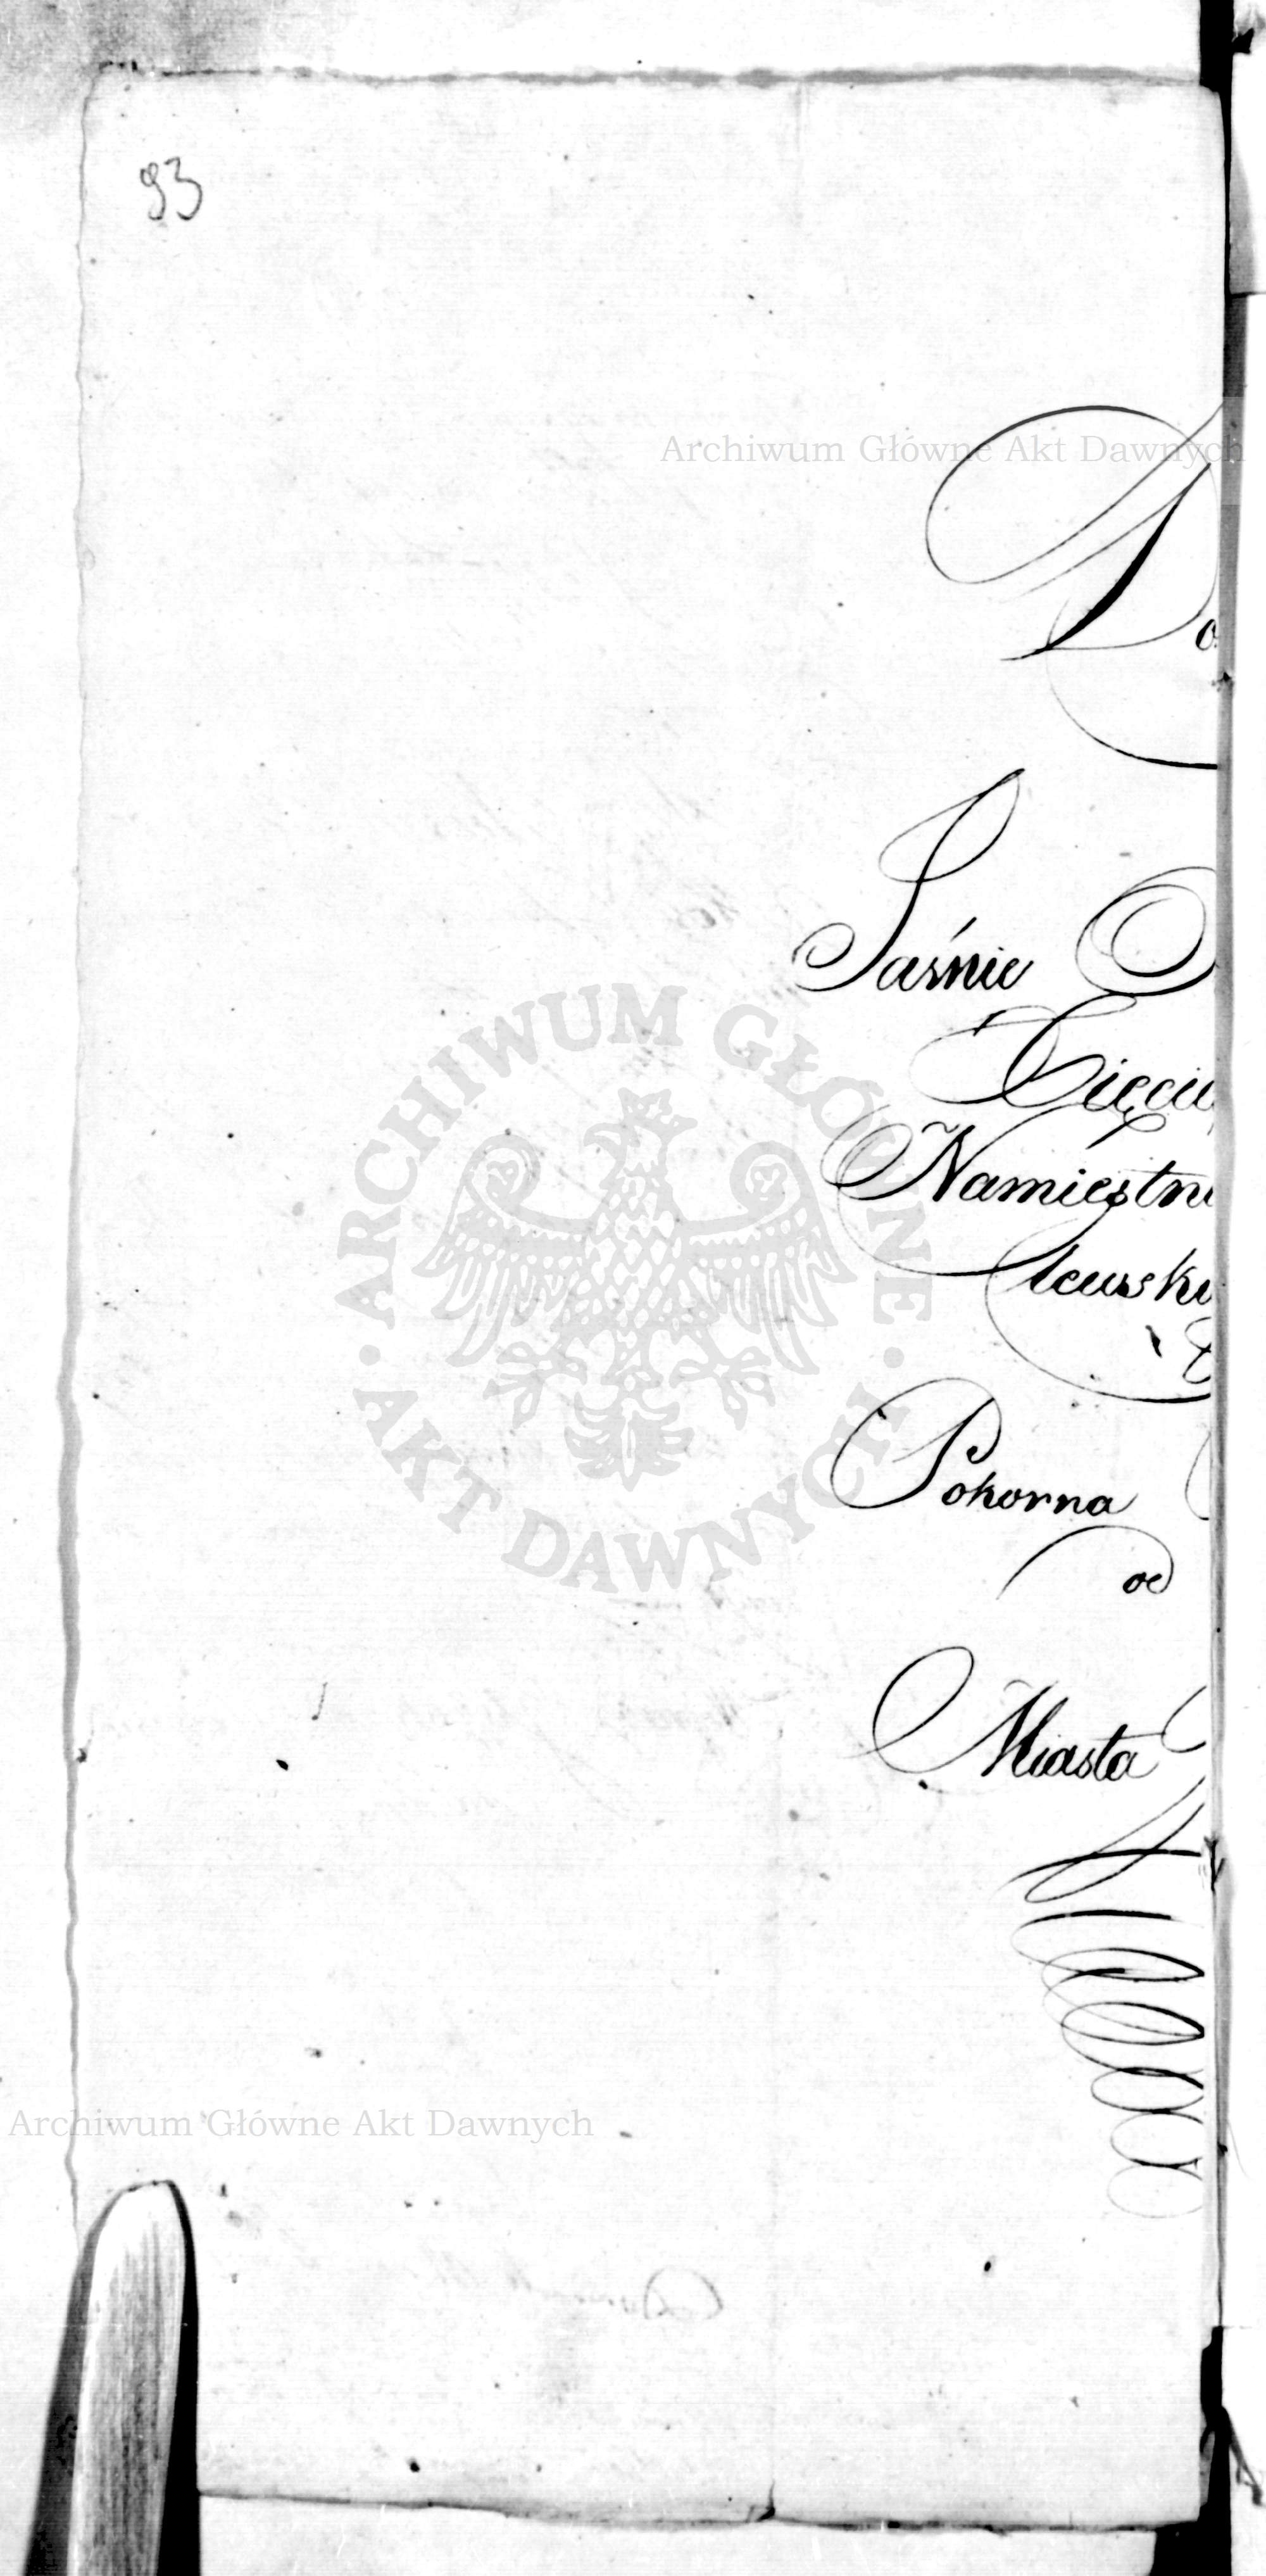 93
Archiwum Główne Akt Dawnych
Do
Jaśnie O
Xięciu
Namiestni
lewski
Pokorna
od
Miasta
ARCHIWUM GŁÓWNE
AKT DAWNYCH
Archiwum Główne Akt Dawnych